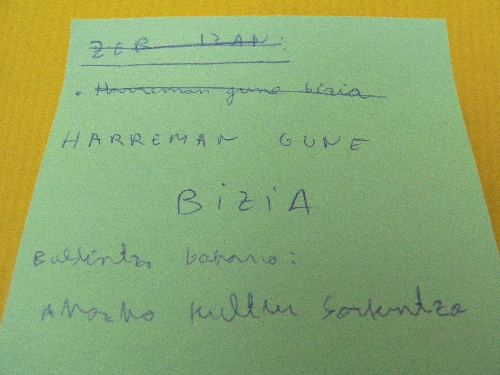 ZER IZAN:
• Harreman gune bizia
HARREMAN GUNE
BiZiA
Baldintza bakarra:
Ahozko kultur sorkuntza